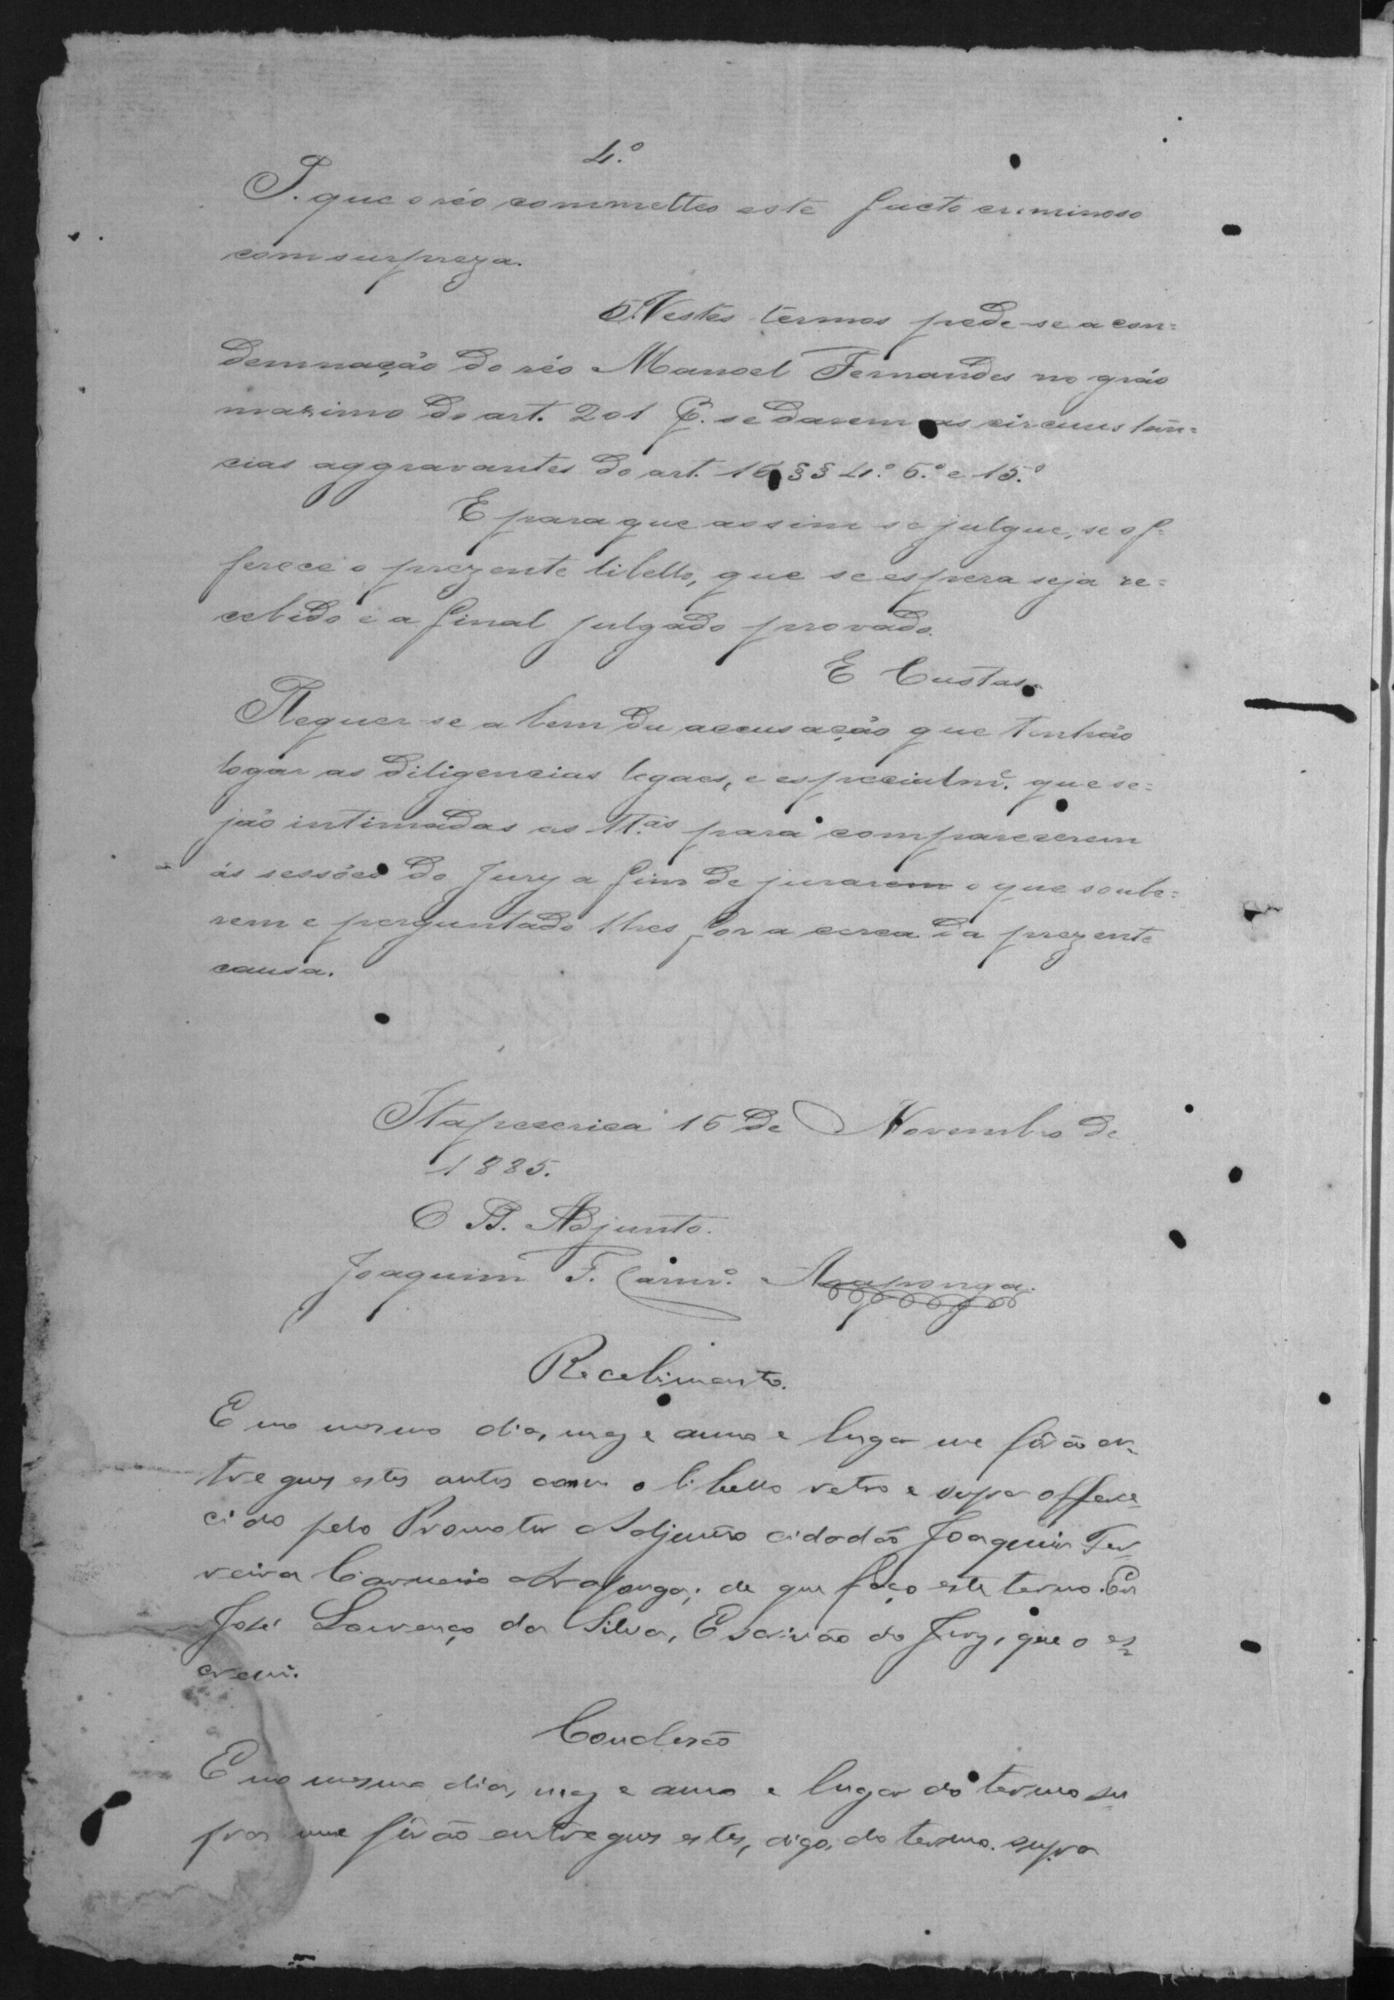 4.º
P. que o réo commetteo este facto criminoso
com surpreza.
Nestes termos pede-se a con=
demnação do réo Manoel Fernandes no gráo
maximo do art. 201 se darem as circumstân=
cias aggravantes do art. 16 §§ 4.º 6.º e 15.º
E para que assim se julgue, se of-
ferece o prezente libello, que se espera seja re=
cebido e a final julgado provado.
E Custas.
Requer-se a bem da accusação que tenhão
logar as diligencias legaes, e especialmᵉ. que se=
jão intimadas as TT.as para comparecerem
ás sessões do Jury a fim de jurarem o que soube=
rem e perguntado lhes for a cerca da prezente
causa.
Itapecerica 16 de Novembro de
1885.
O P. Adjunto.
Joaquim F. Carnrº. Araponga.
Recebimento.
E no mesmo dia, mez e anno e lugar me fôrão en-
tregues estes autos com o libello retro e supra offere-
cido pelo Promotor Adjunto cidadão Joaquim Fer-
reira Carneiro Araponga; de que faço este termo. Eu
José Lourenço da Silva, Escrivão do Jury, que o es-
crevi.
Conclusão
E no mesmo dia, mez e anno e lugar do termo su
pra me fôrão entregues estes, digo, do termo supra